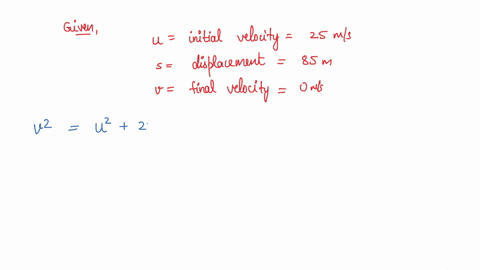 Given,
u = initial velocity = 25 m/s
s = displacement = 85 m
v = final velocity = 0 m/s
v² = u² + 2